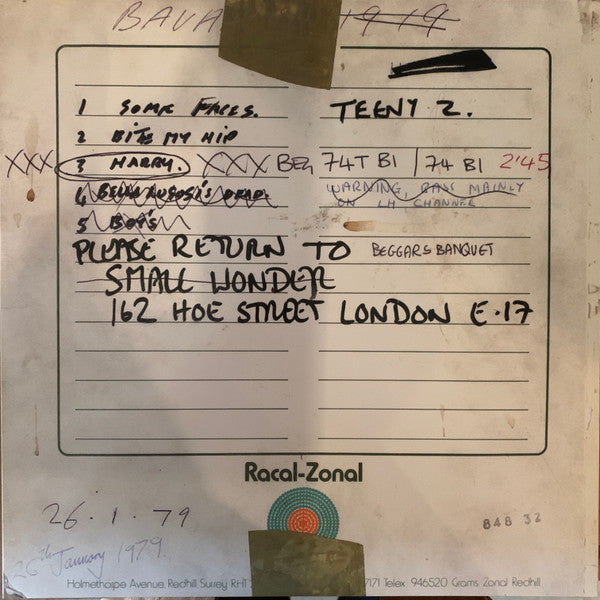 BAVA 1919
1 SOME FACES. TEENY 2.
2 BITE MY HIP
XXX 3 HARRY. XXX BEG 74T B1 / 74 B1 2'45
4 BELA LUGOSI'S DEAD WARNING, BASS MAINLY
ON LH CHANNEL
5 BOY'S
PLEASE RETURN TO BEGGARS BANQUET
SMALL WONDER
162 HOE STREET LONDON E.17
Racal-Zonal
26.1.79
848 32
26th January 1979.
Holmethorpe Avenue, Redhill, Surrey RH1 7171 Telex 946520 Grams Zonal Redhill